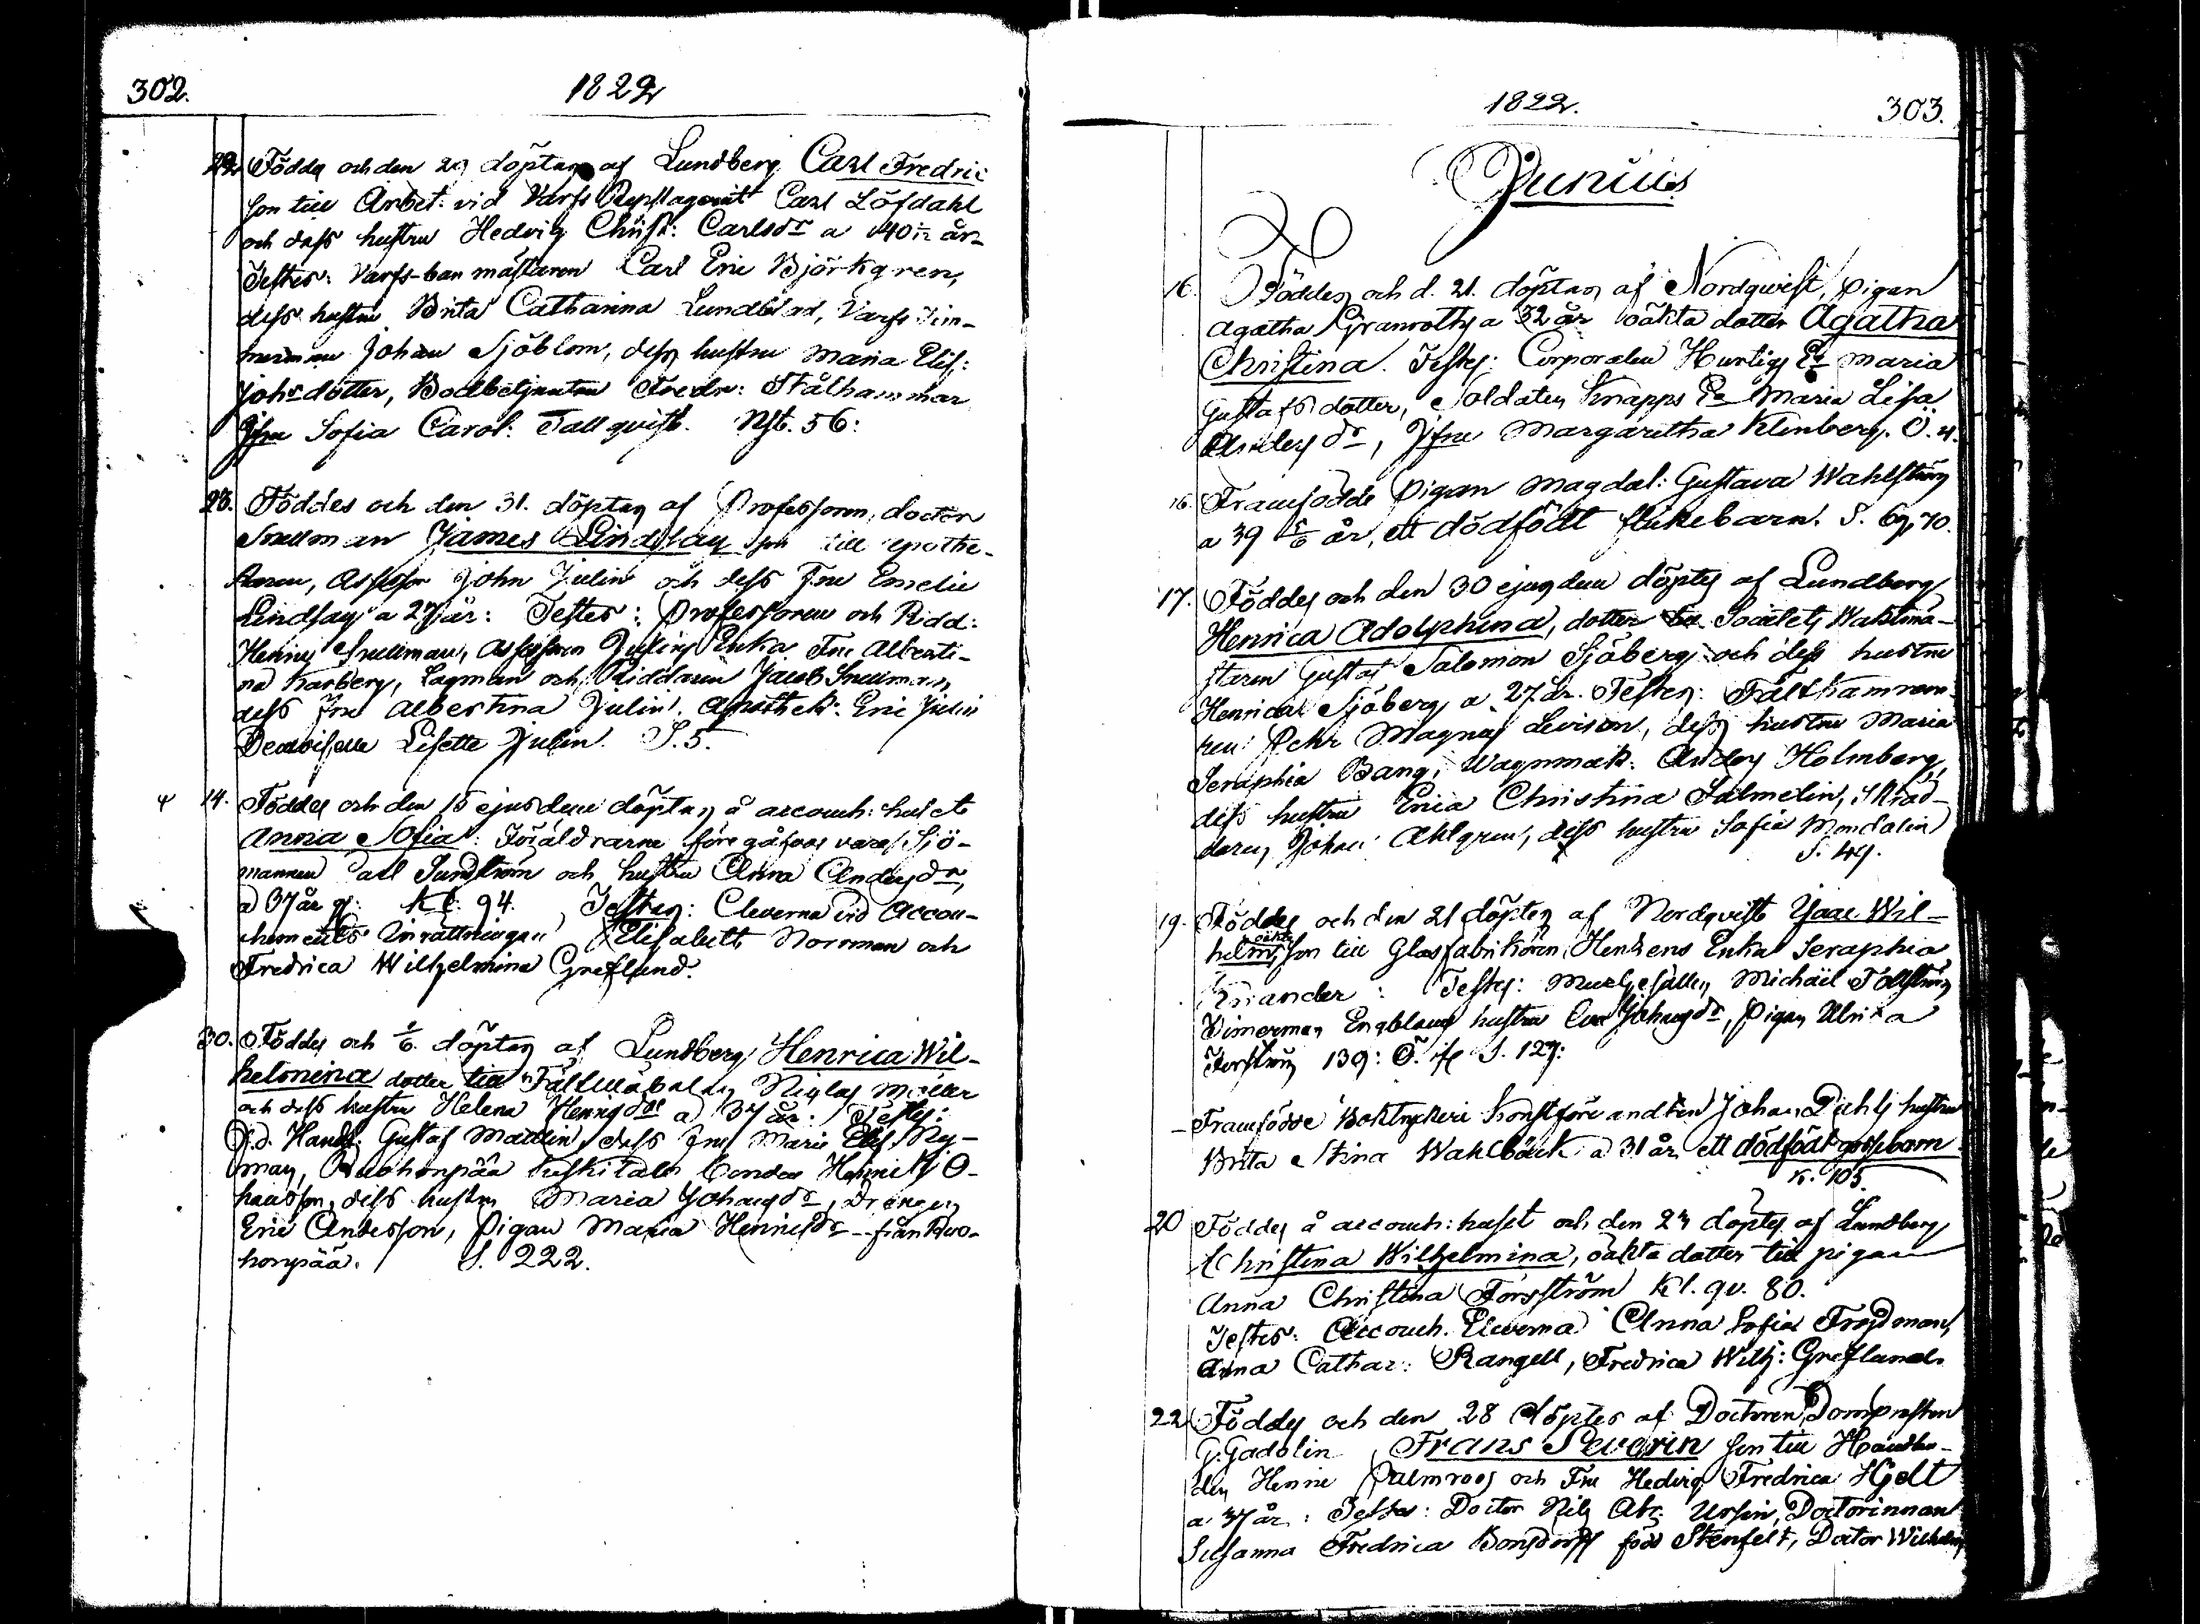 302.
1822
22. Föddes och den 29 döptes af Lundberg Carl Fredric
son till Arbet. vid Varfs Repslageriet Carl Löfdahl
och dess hustru Hedvig Christ: Carlsdr a 40 år
Testes: Varfs-ban mästaren Carl Eric Björkgren,
dess hustru Brita Catharina Lundblad, Varfs Tim-
merman Johan Sjöblom, dess hustru Maria Elis:
Johsdotter, Bodbetjenten Fredr: Stålhammar
Jfru Sofia Carol: Tallqvist. Nst. 56:
23. Föddes och den 31. döptes af Professoren, doctor
Snellman James Lindsay son till Apothe-
karen, Assessor John Julin och dess Fru Emelie
Lindsay a 27 år: Testes: Professoren och Ridd:
Henric Snellman, Assessorn Julins Enka Fru Alberti-
na Karberg, Lagman och Riddaren Jacob Snellman,
dess Fru Albertina Julin. Apothek: Eric Julin
Demoiselle Lisette Julin. S. 5.
14. Föddes och den 15 ejusdem döptes å accouch: huset
Anna Sofia. Föräldrarna föregåfvos vara Sjö-
mannen Carl Sundström och hustru Anna Andersdr,
a 37 år g: Kl: 94. Testes: Eleverna vid Accou-
chements Inrättningen Elisabeth Norrman och
Fredrica Wilhelmina Greflund.
30. Föddes och 2/6. döptes af Lundberg Henrica Wil-
helmina dotter till Niclas Möller
och dess hustru Helena Henrigsdr a 37 år. Testes:
Handl: Gustaf Mallin, dess Fru Maria Elis. Ny-
man, bonden Henric O-
hansson, dess hustru Maria Johansdr, Drängen
Eric Andersson, Pigan Maria Henricsdr -- från Kuo-
honpää. S. 222.
1822.
303.
Junius
16. Föddes och d. 21. döptes af Nordqvist, pigan
Agatha Granroths a 32 år oäkta dotter Agatha
Christina. Testes: Corporalen Hurtigs Ea Maria
Gustafsdotter, Soldaten Knapps Ea Maria Lisa
Andersdr, Jfru Margaretha Klinberg. Ö. 4.
16. Framfödde Pigan Magdal: Gustava Wahlström
a 39 5/6 år, ett dödfödt flickebarn. S. 69, 70.
17. Föddes och den 30 ejusdem döptes af Lundberg
Henrica Adolphina, dotter Societets Waktmä-
staren Gustaf Salomon Sjöberg och dess hustru
Henrica Sjöberg a 27 år. Testes: Fältkamrera-
ren Pehr Magnus Levison, dess hustru Maria
Seraphia Bang, Wagnmak: Anders Holmberg,
dess hustru Erica Christina Salmelin, Skräd-
daren Johan Ahlgren, dess hustru Sofia Mondalin
S. 49.
19. Föddes och den 21 döptes af Nordqvist Isac Wil-
oäkta
helm, son till Glasfabrikören Henkens Enka Seraphia
Enander: Testes: Murgesällen Michael Tallström
Timerman Englblaus hustru Eva Johansdr, Pigan Ulrika
Torström 139: Ö. S. 127:
- Framfödde Boktryckeri Konstförvandten Johan Dahls hustru
Brita Stina Wahlbäck a 31 år ett dödfödt gossebarn
K. 105.
20 Föddes å accouch: huset och den 23 döptes af Lundberg
Christina Wilhelmina, oäkta dotter till pigan
Anna Christina Forsström Kl. qv. 80.
Testes: Accouch. Eleverna Anna Sofia Frojdman,
Anna Cathar: Rangell, Fredrica Wilh: Greflund.
22 Föddes och den 28 döptes af Doctoren, Domprosten
G. Gadolin Frans Severin son till Handlan-
den Henric Palmroos och Fru Hedvig Fredrica Hjelt
a 37 år: Testes: Doctor Nils Abr. Ursin, Doctorinnan
Susanna Fredrica Bonsdorff född Stenfelt, Doctor Wilhelm